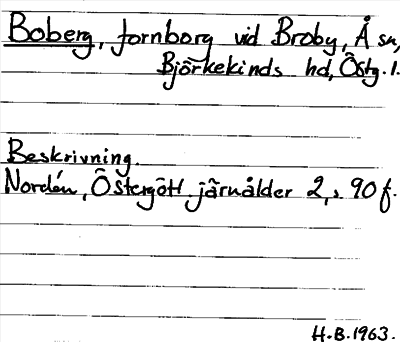 Boberg, fornborg vid Broby, Å sn,
Björkekinds hd, Östg. l.
Beskrivning.
Nordén, Östergötl. järnålder 2, s. 90 f.
H.B. 1963.